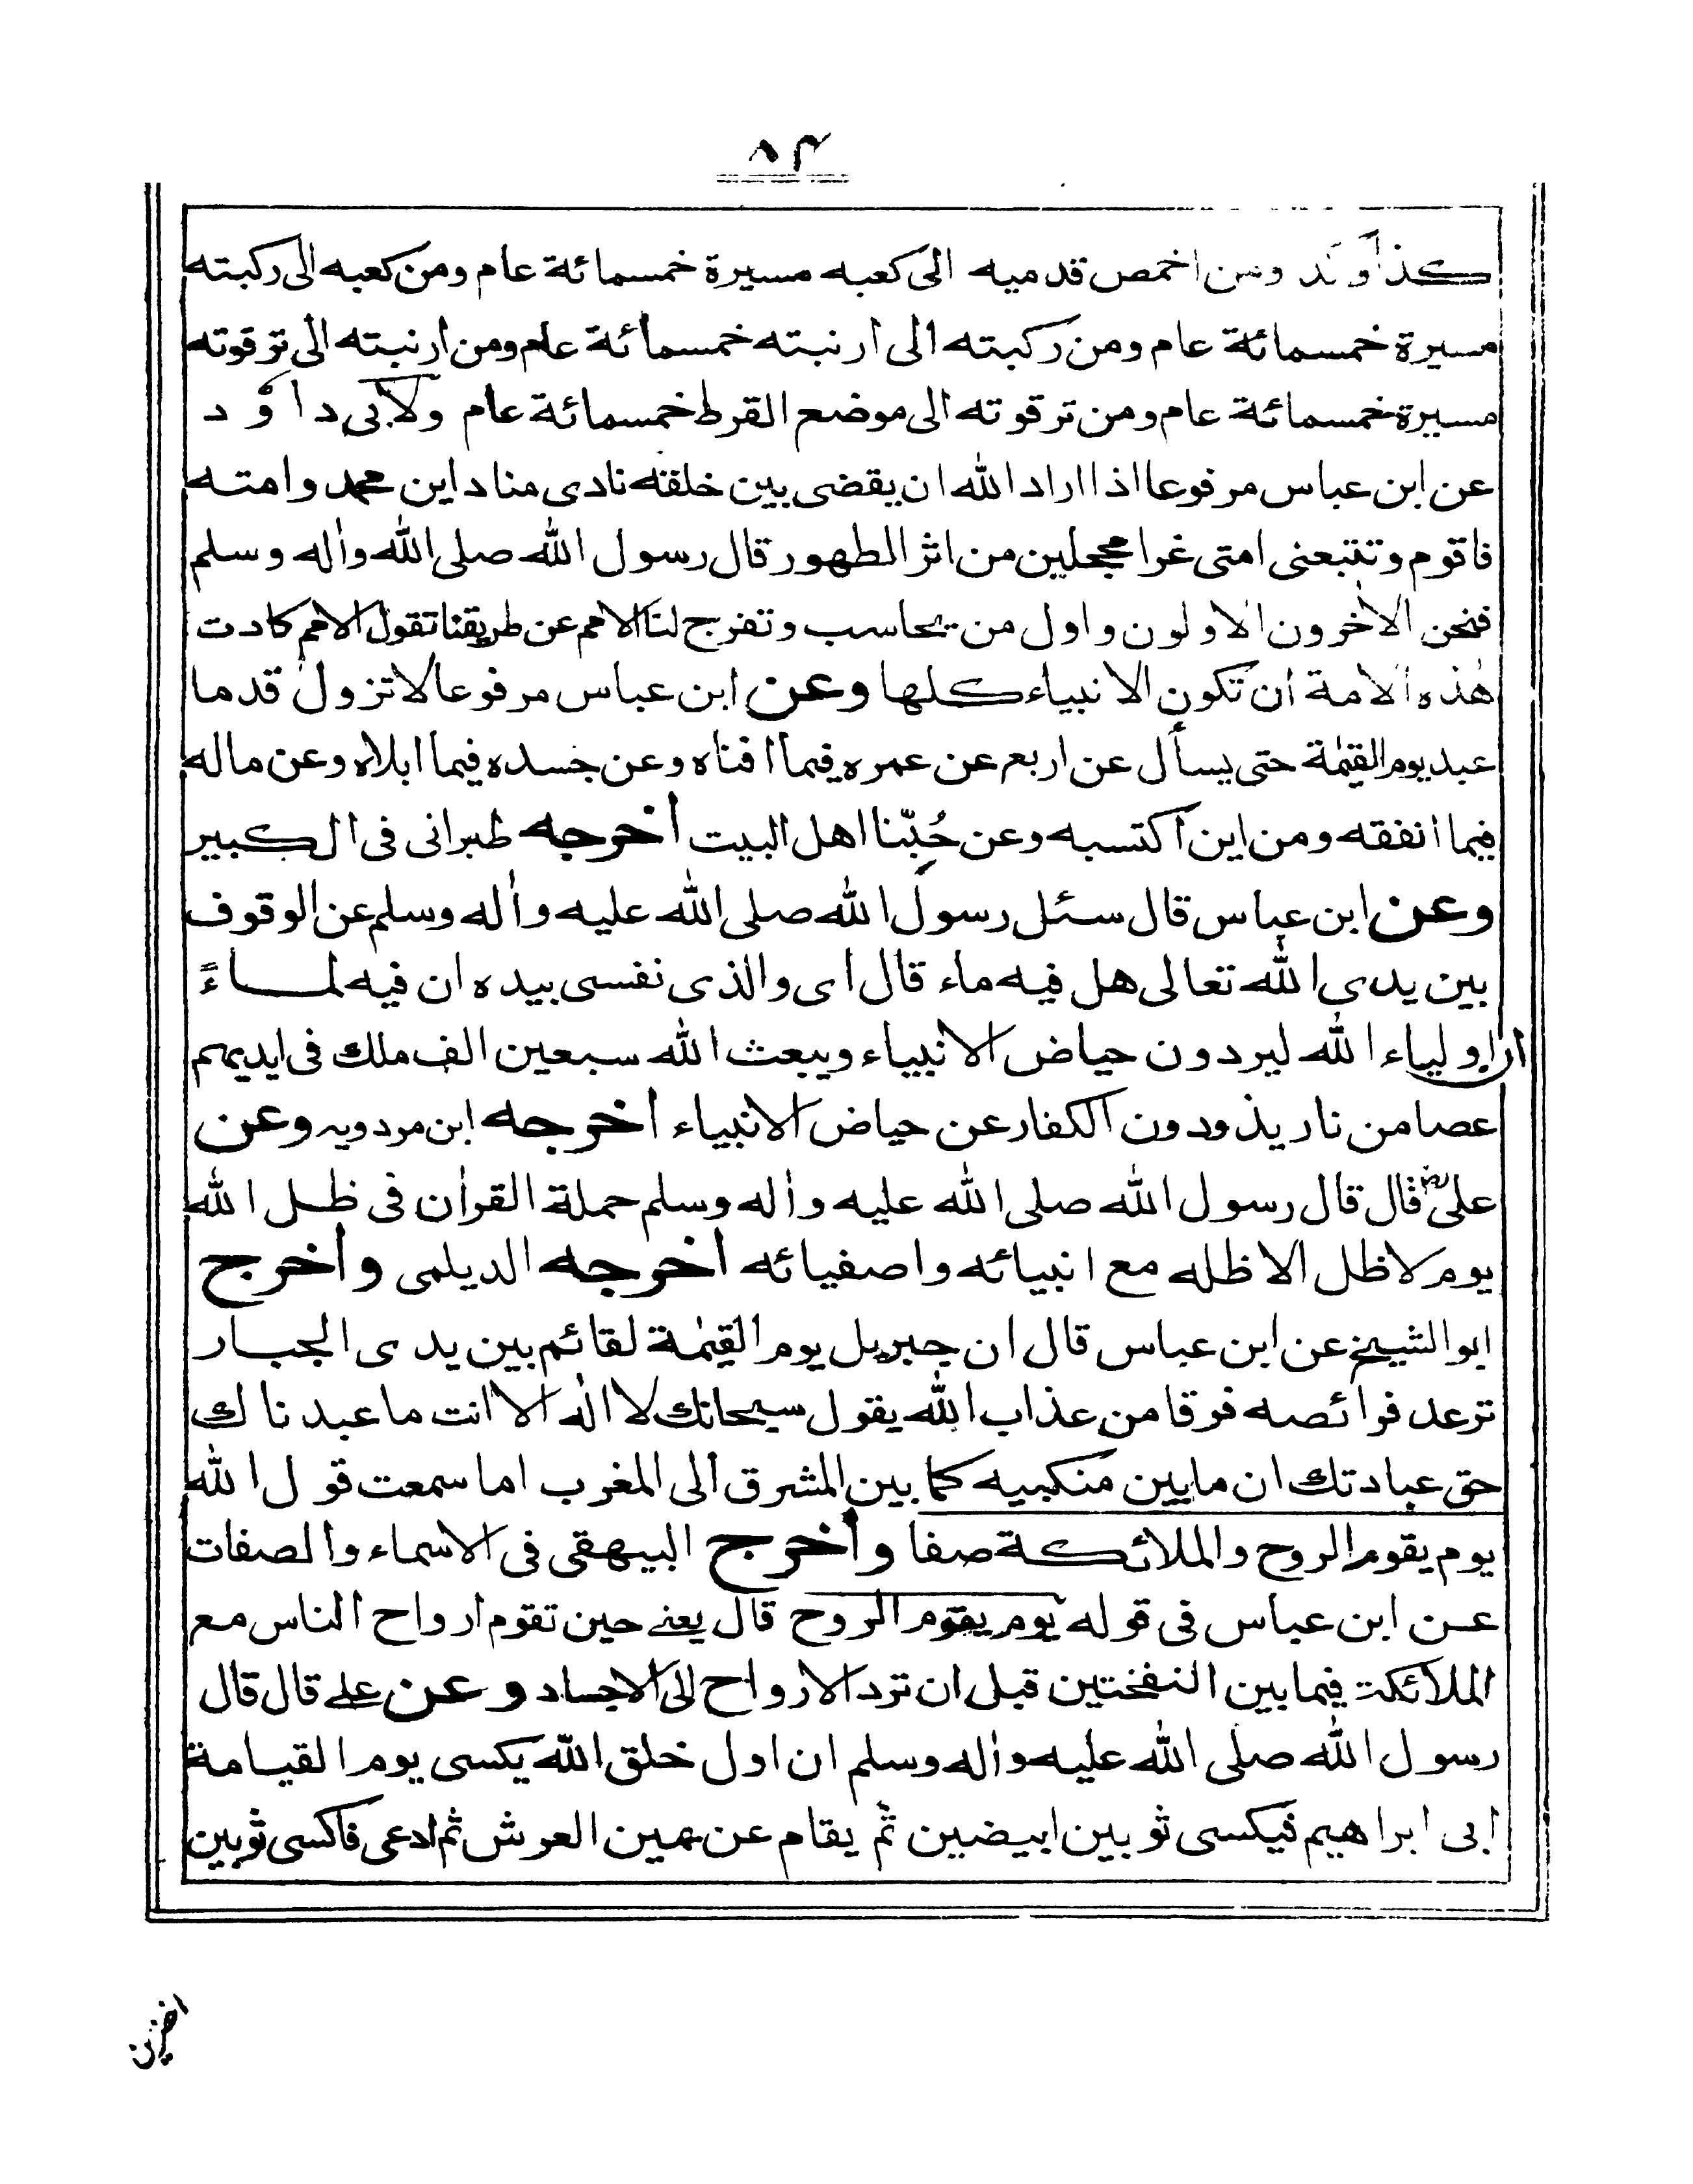 ٨٤
كذا وند ومن اخمص قدميه الى كعبه مسيرة خمسمائة عام ومن كعبه الى ركبته
مسيرة خمسمائة عام ومن ركبته الى ارنبته خمسمائة عام ومن ارنبته الى ترقوته
مسيرة خمسمائة عام ومن ترقوته الى موضع القرط خمسمائة عام ولابى داؤد
عن ابن عباس مرفوعا اذا اراد الله ان يقضى بين خلقه نادى مناد اين محمد وامته
فاقوم وتتبعنى امتى غرا محجلين من اثر الطهور قال رسول الله صلى الله واٰله وسلم
فنحن الاٰخرون الاولون واول من يحاسب وتفرج لنا الامم عن طريقنا تقول الامم كادت
هٰذه الامة ان تكون الانبياء كلها وعن ابن عباس مرفوعا لا تزول قدما
عبد يوم القيٰمة حتى يسأل عن اربع عن عمره فيما افناه وعن جسده فيما ابلاه وعن ماله
فيما انفقه ومن اين اكتسبه وعن حُبّنا اهل البيت اخرجه طبرانى فى الكبير
وعن ابن عباس قال سئل رسول الله صلى الله عليه واٰله وسلم عن الوقوف
بين يدى الله تعالى هل فيه ماء قال اى والذى نفسى بيده ان فيه لماءً
ان اولياء الله ليردون حياض الانبياء ويبعث الله سبعين الف ملك فى ايديهم
عصا من نار يذودون الكفار عن حياض الانبياء اخرجه ابن مردويه وعن
علىؓ قال قال رسول الله صلى الله عليه واٰله وسلم حملة القراٰن فى ظل الله
يوم لا ظل الا ظله مع انبيائه واصفيائه اخرجه الديلمى واخرج
ابو الشيخ عن ابن عباس قال ان جبريل يوم القيٰمة لقائم بين يدى الجبار
ترعد فرائصه فرقا من عذاب الله يقول سبحانك لا اله الا انت ما عبدناك
حق عبادتك ان ما بين منكبيه كما بين المشرق الى المغرب اما سمعت قول الله
يوم يقوم الروح والملائكة صفا واخرج البيهقى فى الاسماء والصفات
عن ابن عباس فى قوله يوم يقوم الروح قال يعنے حين تقوم ارواح الناس مع
الملائكة فيما بين النفختين قبل ان ترد الارواح الى الاجساد وعن علے قال قال
رسول الله صلى الله عليه واٰله وسلم ان اول خلق الله يكسى يوم القيامة
ابى ابراهيم فيكسى ثوبين ابيضين ثم يقام عن يمين العرش ثم ادعى فاكسى ثوبين
اخضرين